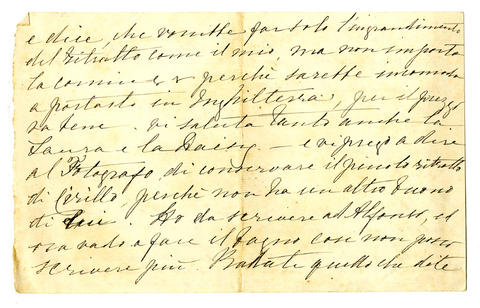 e dice, che vorrebbe far solo l'ingrandimento
del ritratto come il mio ma non importa
la cornice &. &. perchè sarebbe incomoda
a portarlo in Inghilterra, per il prezzo
va bene. vi saluta tanto anche la
Laura e la Daisy — e vi prego a dire
al Fotografo di conservare il piccolo ritratto
di Cirillo, perchè non ha un altro buono
di lui. Ho da scrivere ad Alfonso, ed
ora vado a fare il bagno così non posso
scrivere più. Badate quello che dite